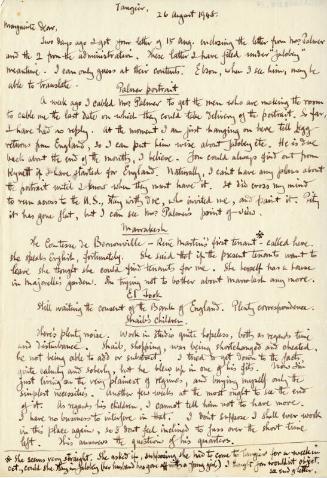 Tangier,
26 August 1948.
Marguerite Dear,
Two days ago I got your letter of 15 Aug. enclosing the letter from Mrs Palmer
and the 2 from the administration. These latter I have filed under "jaloby"
meantime. I can only guess at their contents. Elson, when I see him, may be
able to translate.
Palmer portrait
A week ago I cabled Mrs Palmer to get the men who are making the room
to cable me the last date on which they could take delivery of the portrait. So far,
I have had no reply. At the moment I am just hanging on here till
returns from England, so I can put him wise about jaloby etc. He is due
back about the end of the month, I believe. You could always find out from
if I have started for England. Naturally, I can't have any plans about
the portrait until I know when they must have it. It did cross my mind
to run across to the U.S., stay with Dot, who invited me, and paint it. Pity
it has gone flat, but I can see Mrs Palmer's point of view.
Marrakesh
The Comtesse de - René Martin's first tenant - called here.*
She speaks English, fortunately. She said that if the present tenants want to
leave she thought she could find tenants for me. She herself has a house
in Majorelle's garden. I'm trying not to bother about Marrakesh any more.
El Fook
Still waiting the consent of the Bank of England. Plenty correspondence.
Shaib's children
There's plenty noise. Work in studio quite hopeless, both as regards time
and disturbance. Shaib, shopping, was being shortchanged and cheated,
he not being able to add or subtract. I tried to get down to the facts,
quite calmly and soberly, but he blew up in one of his fits. Now I'm
just living on the very plainest of regimes, and buying myself only the
simplest necessities. Another few weeks at the most ought to see the end
of it. As regards his children, I cannot tell him not to have more.
I have no business to interfere in that. I don't suppose I shall ever work
in this place again, so I don't feel inclined to fuss over the short time
left. This answers the question of his quarters.
* She seems very straight. She asked if, supposing she had to come to Tangier for a week in
Oct, could she stay in jaloby (her husband has gone off with a young girl) I thought you wouldn't object.
see end of letter.